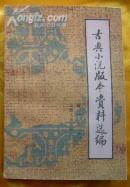 古典小说版本资料选编